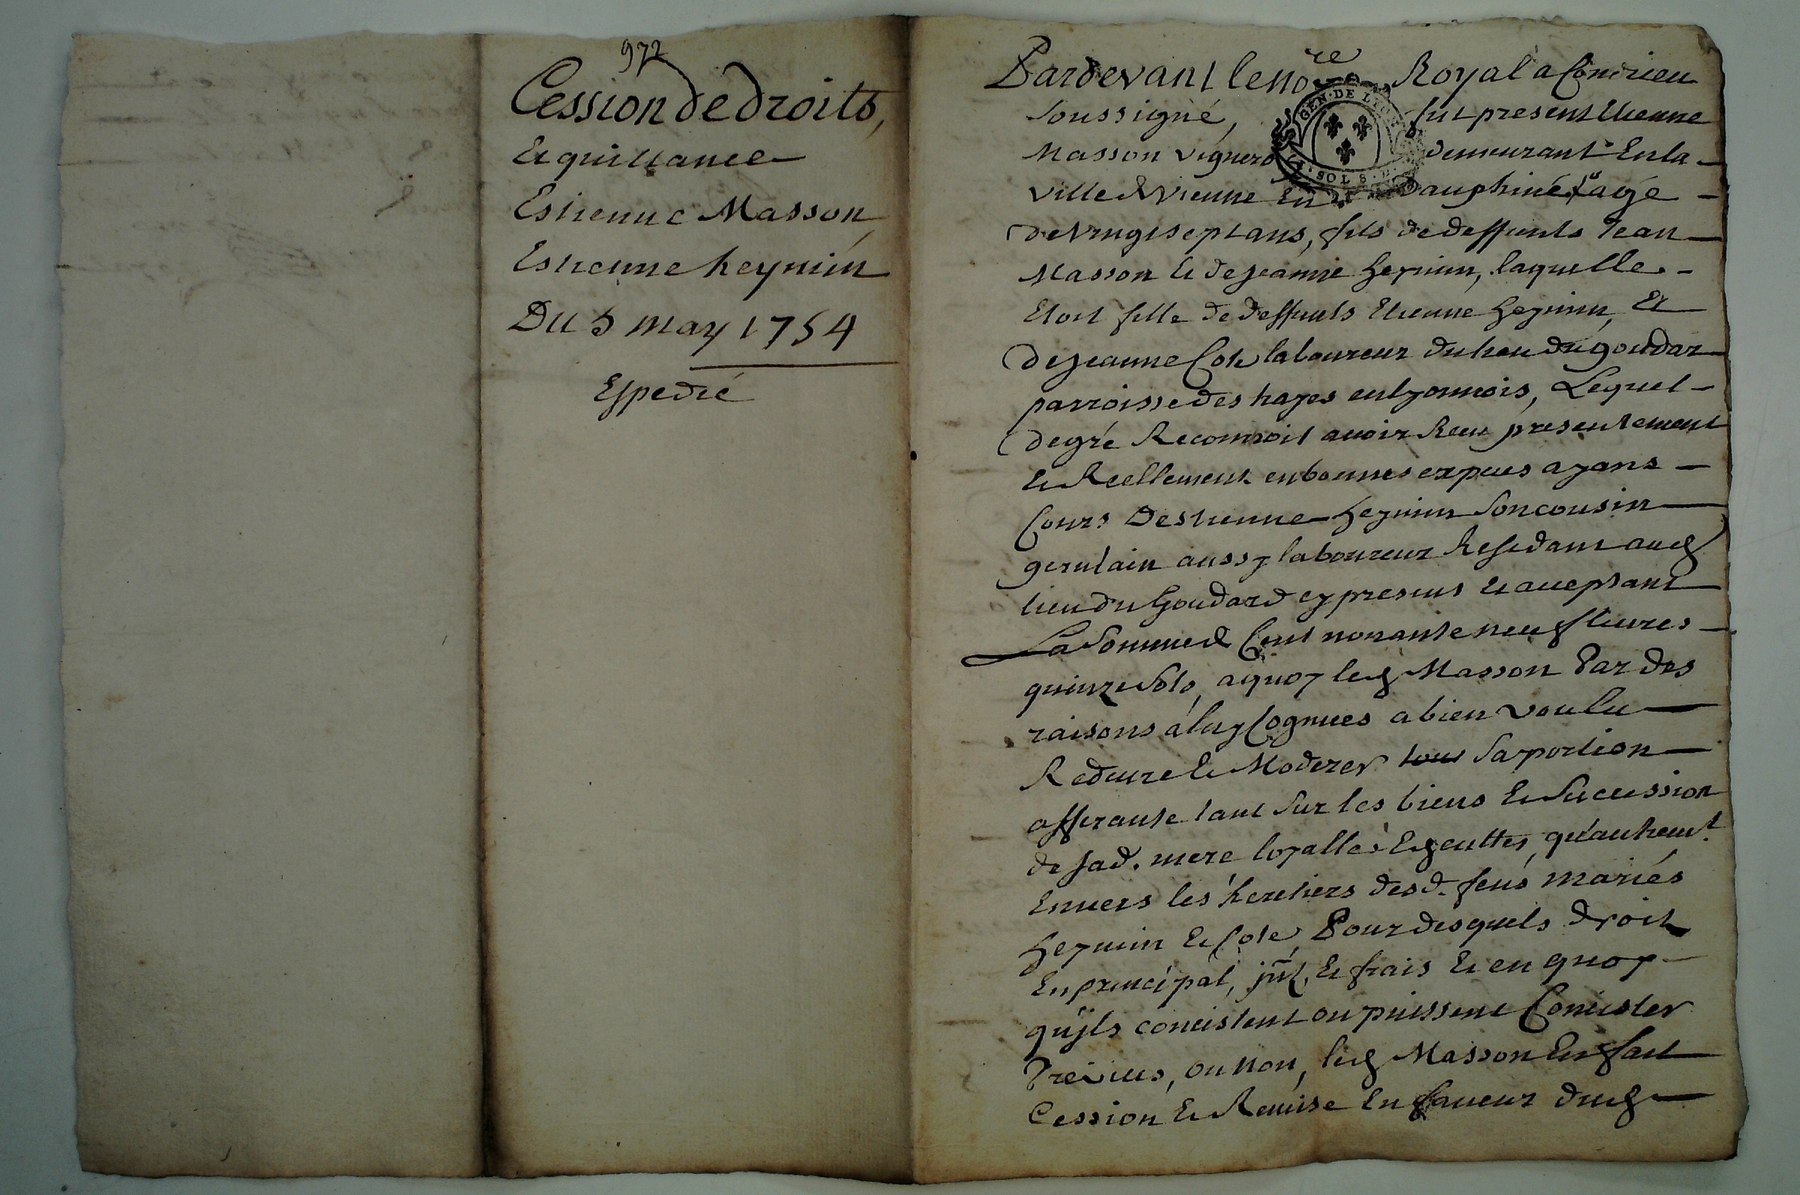 972
Cession de droits,
Et quittance
Estienne Masson
Estienne heynin
Du 5 may 1754
Expedié
Pardevant le nore Royal a Condrieu
Soussigné, fut present Etienne
Masson vigneron demeurant En la
ville de Vienne En Dauphiné agé
de vingt sept ans, fils de deffunts Jean
Masson & de Jeanne heynin, laquelle
Etoit fille de deffunts Etienne heynin, Et
de Jeanne Cote laboureur du lieu du goudar
parroisse des hayes en lyonnois, Lequel
de gré Reconnoit avoir Receu presentement
Et Reellement en bonnes especes ayans
Cours D'estienne heynin son cousin
germain aussy laboureur Residant aud
lieu du Goudard cy present et acceptant
La Somme de Cent nonante neuf livres
quinze Sols, a quoy led Masson Par des
raisons à luy Cognues a bien voulu
Reduire & Moderer sa portion
afferante tant sur les biens & Succession
de sad. mere qu'autremt
Envers les heritiers desd. feus mariés
heynin & Cote, Pour desquels droit
En principal, & frais & en quoy
qu'ils concistent ou puissent Concister
Preveus, ou non, led Masson En fait
Cession & Remise En faveur dud
GEN. DE LYON
SOLS